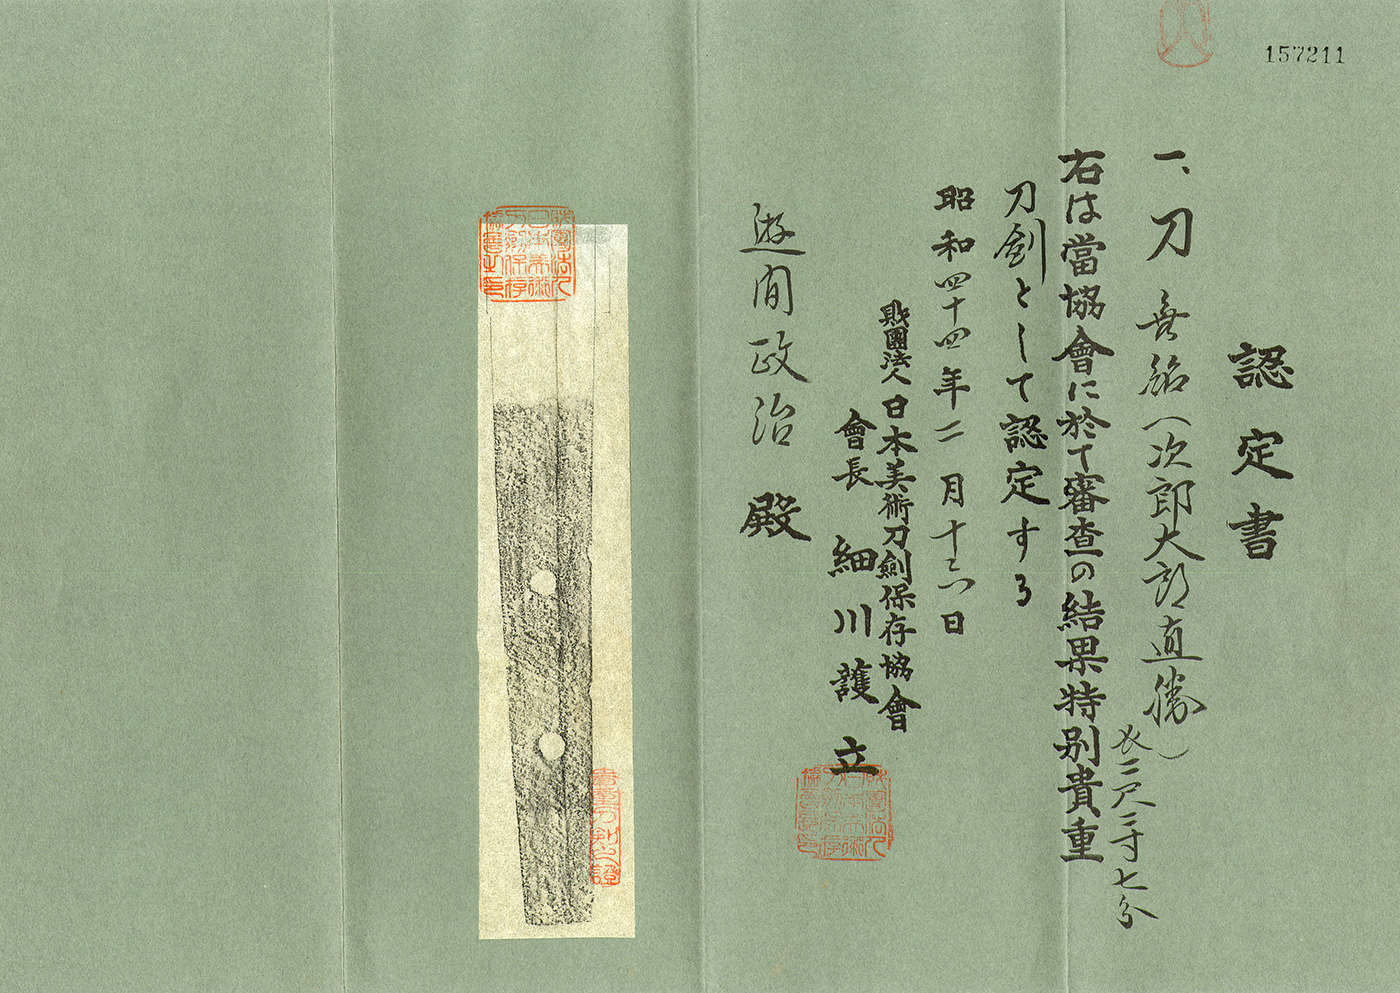 157211
認定書
一、刀 無銘(次郎太郎直勝)
長二尺二寸七分
右は當協會に於て審査の結果特別貴重
刀劍として認定する
昭和四十四年二月十六日
財團法人日本美術刀劍保存協會
會長 細川護立
遊間政治 殿